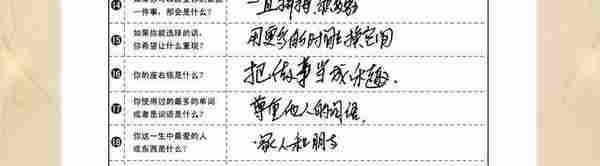 ⑭
一件事，那会是什么?
一直
⑮ 如果你能选择的话，
你希望让什么重现?
用更多的时间换空间
⑯ 你的座右铭是什么?
把做事当成乐趣.
⑰ 你使得过的最多的单词
或者是词语是什么?
尊重他人的词语.
⑱ 你这一生中最爱的人
或东西是什么?
家人和朋友